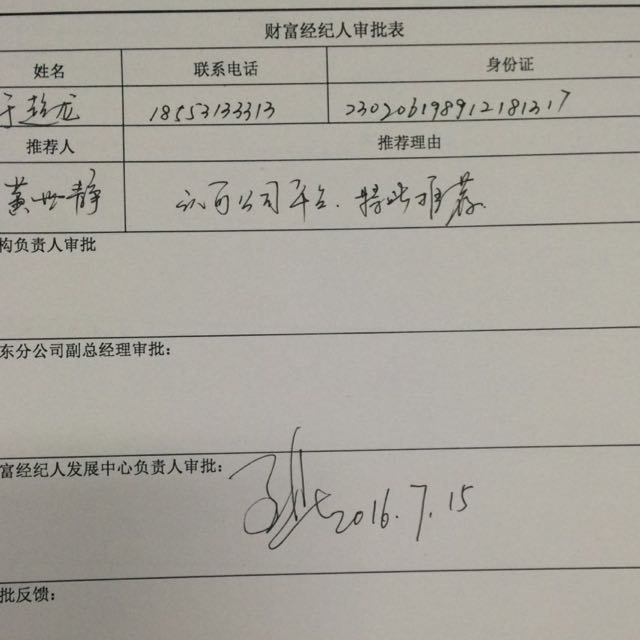 财富经纪人审批表
姓名 联系电话 身份证
于彭龙 18553133313 230206198912181317
推荐人 推荐理由
黄世静 认可公司平台、特此推荐
构负责人审批
东分公司副总经理审批:
富经纪人发展中心负责人审批:
2016.7.15
批反馈: